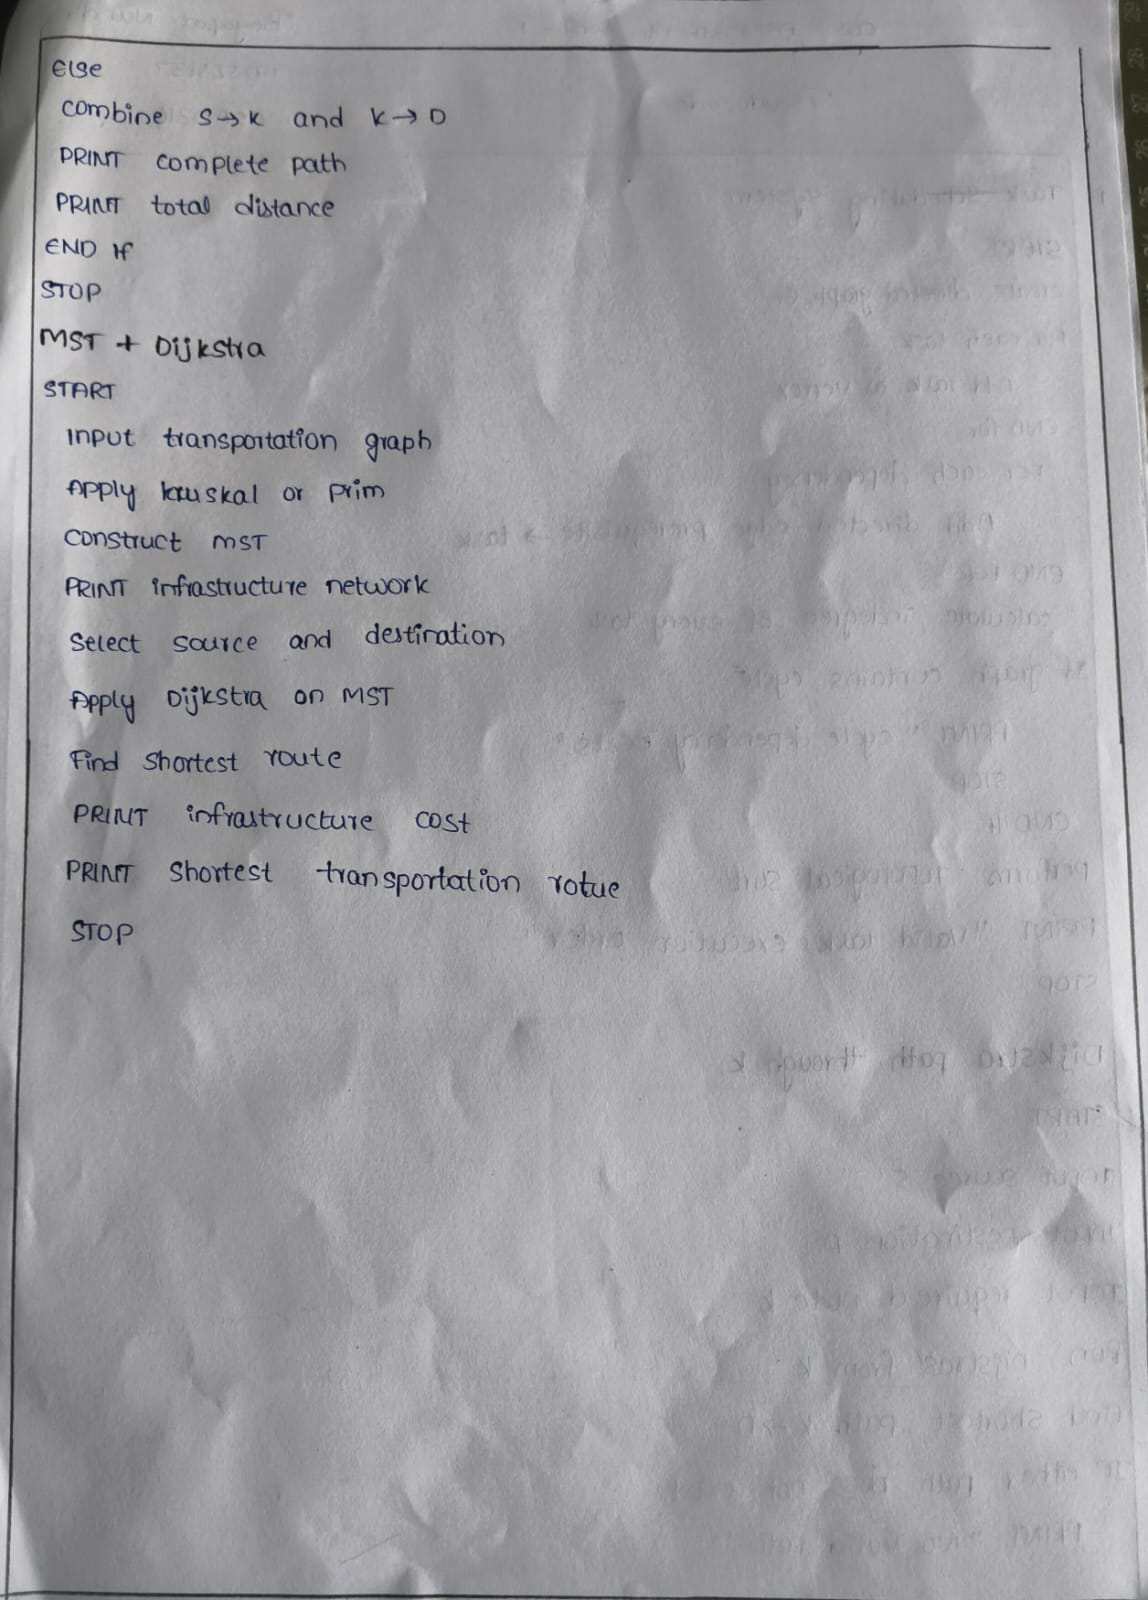 Else
combine S→K and K→D
PRINT complete path
PRINT total distance
END If
STOP
MST + Dijkstra
START
Input transportation graph
Apply kruskal or prim
Construct MST
PRINT infrastructure network
Select source and destination
Apply Dijkstra on MST
Find shortest route
PRINT infrastructure cost
PRINT Shortest transportation rotue
STOP